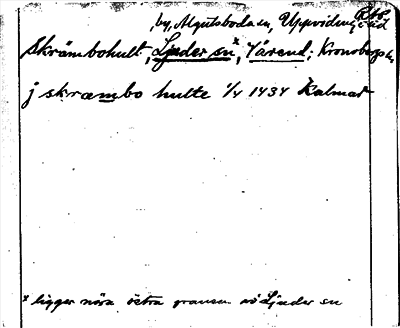 by, Algutsboda sn, Uppvidinge
Skrämbohult, Ljuder sn*, Värend, Kronobergs l.
j skræmbo hulte 1/4 1434 Kalmar
* ligger nära östra gränsen av Ljuder sn